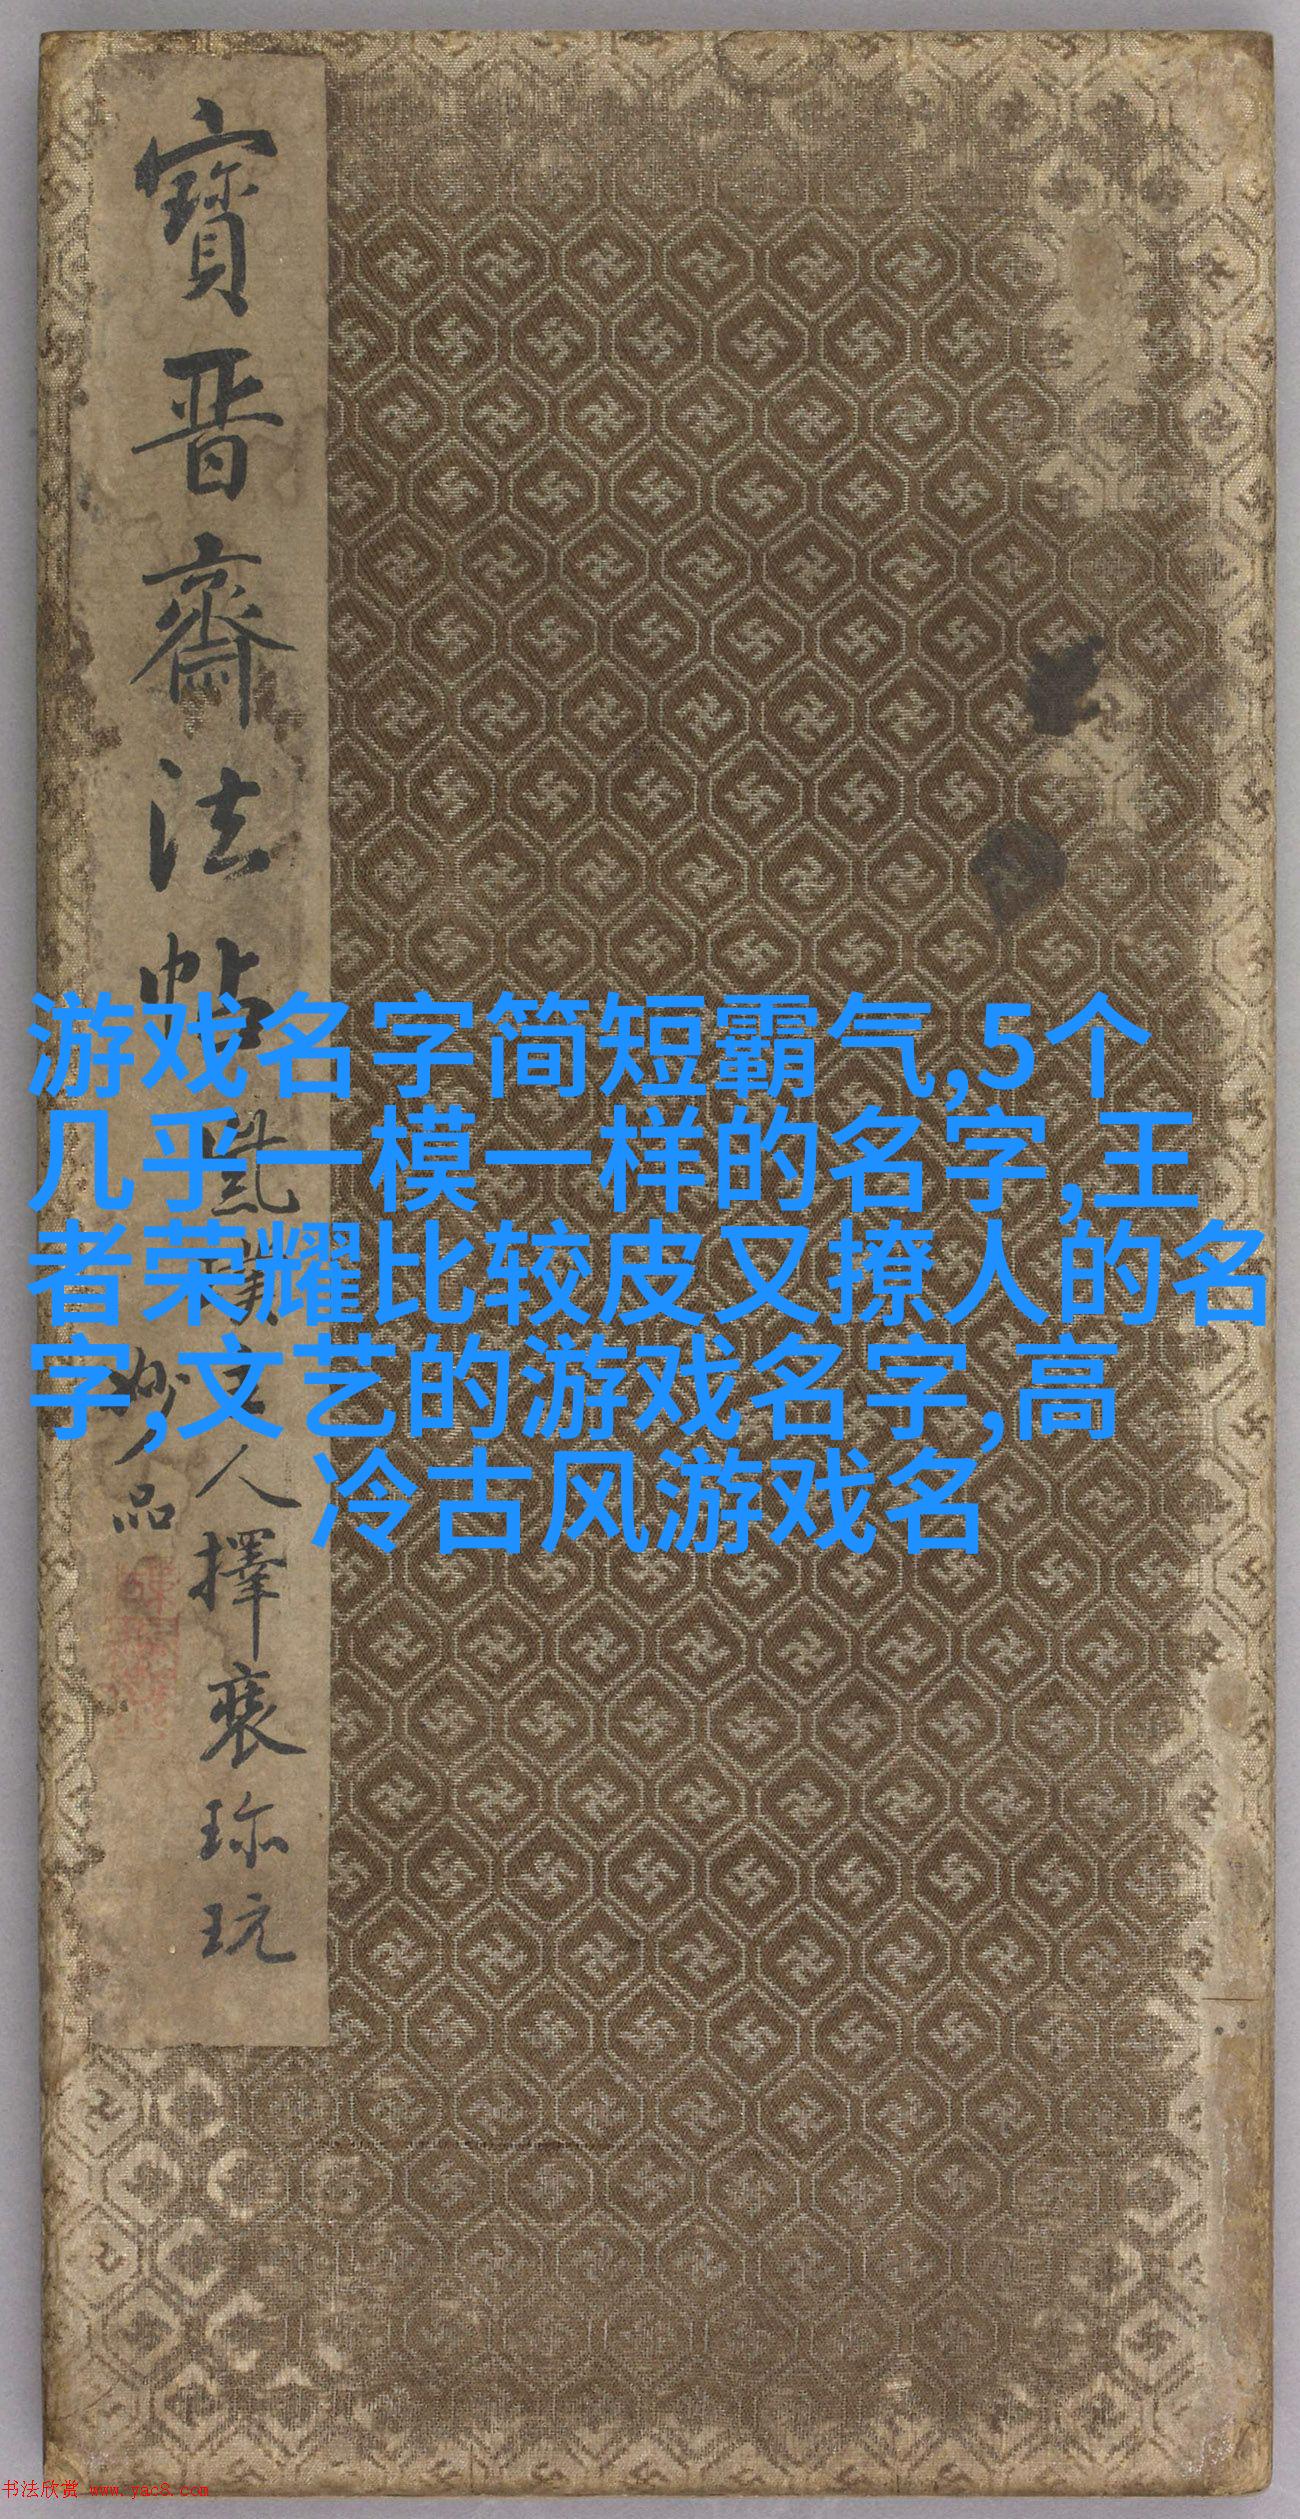 寶晋齋法帖
人擇
珎玩
妙品
游戏名字简短霸气,5个
几乎一模一样的名字,王
者荣耀比较皮又撩人的名
字,文艺的游戏名字,高
冷古风游戏名
书法欣赏 www.yac8.com